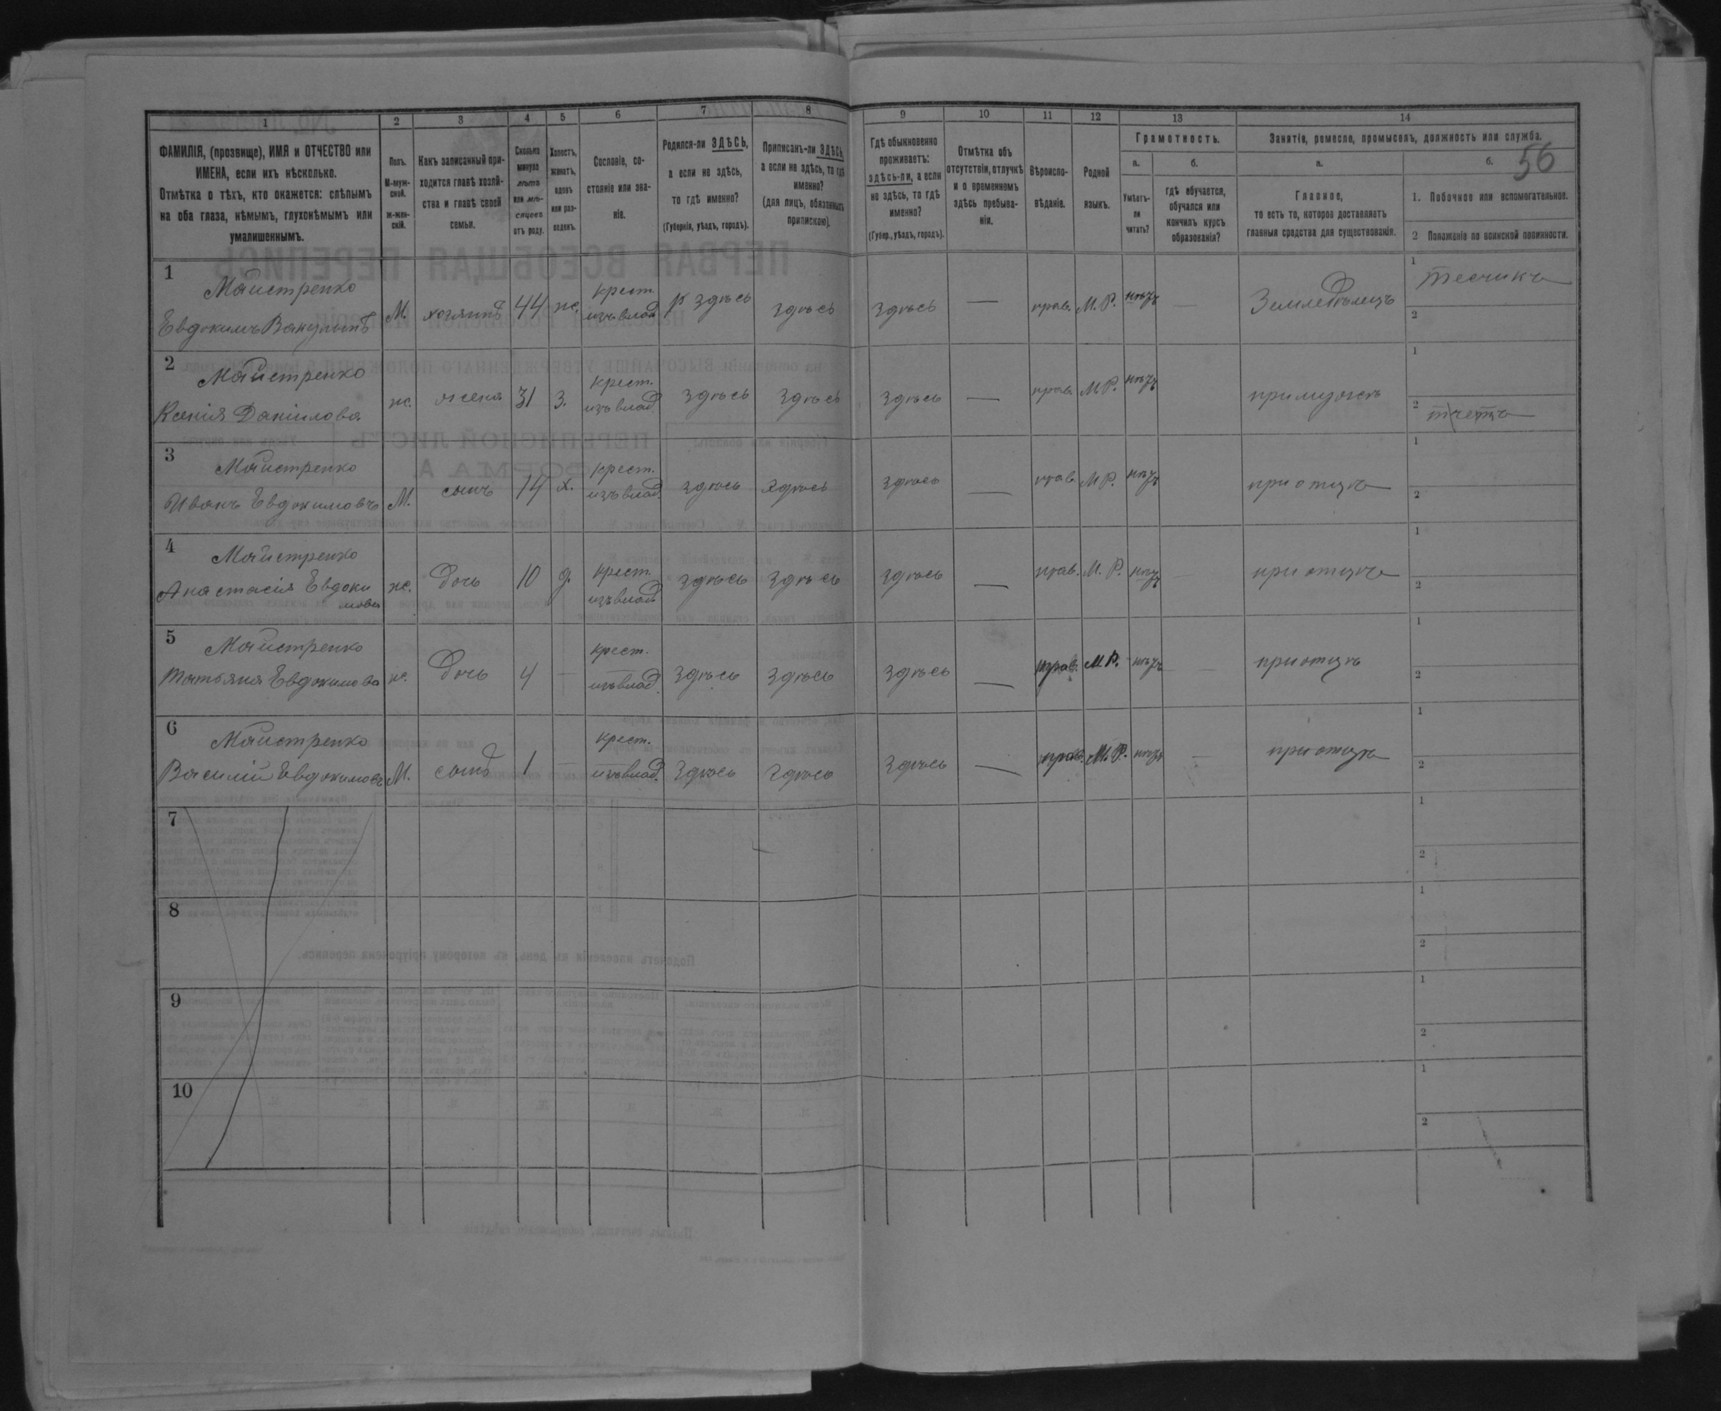 56
1 2 3 4 5 6 7 8 9 10 11 12 13 14
ФАМИЛІЯ, (прозвище), ИМЯ и ОТЧЕСТВО или
ИМЕНА, если ихъ нѣсколько.
Отмѣтка о тѣхъ, кто окажется: слѣпымъ
на оба глаза, нѣмымъ, глухонѣмымъ или
умалишеннымъ.
Полъ.
М-муж-
ской.
ж-жен-
скій.
Какъ записанный при-
ходится главѣ хозяй-
ства и главѣ своей
семьи.
Сколько
минуло
лѣтъ
или мѣ-
сяцевъ
отъ роду.
Холостъ,
женатъ,
вдовъ
или раз-
веденъ.
Сословіе, со-
стояніе или зва-
ніе.
Родился-ли ЗДѢСЬ,
а если не здѣсь,
то гдѣ именно?
(Губернія, уѣздъ, городъ).
Приписанъ-ли ЗДѢСЬ,
а если не здѣсь, то гдѣ
именно?
(для лицъ, обязанныхъ
припискою).
Гдѣ обыкновенно
проживаетъ:
здѣсь-ли, а если
не здѣсь, то гдѣ
именно?
(Губер., уѣздъ, городъ).
Отмѣтка объ
отсутствіи, отлучкѣ
и о временномъ
здѣсь пребыва-
ніи.
Вѣроиспо-
вѣданіе.
Родной
языкъ.
Грамотность.
а.
Умѣетъ-
ли
читать?
б.
гдѣ обучается,
обучался или
кончилъ курсъ
образованія?
Занятіе, ремесло, промыселъ, должность или служба.
а.
Главное,
то есть то, которое доставляетъ
главныя средства для существованія.
б.
1. Побочное или вспомогательное.
2 Положеніе по воинской повинности.
1
Майстренко
Евдокимъ
М. 44 крест. изъ влад. здѣсь здѣсь здѣсь — прав. М.Р. — Земледѣлецъ
1
2
2
Майстренко
Ксенія Даніилова
ж. жена 31 з. крест. изъ влад. здѣсь здѣсь здѣсь — прав. М.Р. при мужѣ
1
2
3
Майстренко
Иванъ Евдокимовъ
М. сынъ 14 х. крест. изъ влад. здѣсь здѣсь здѣсь — прав. М.Р. при отцѣ
1
2
4
Майстренко
Анастасія Евдоки
мова
ж. дочь 10 д. крест. изъ влад. здѣсь здѣсь здѣсь — прав. М.Р. — при отцѣ
1
2
5
Майстренко
Татьяна Евдокимова
ж. дочь 4 — крест. изъ влад. здѣсь здѣсь здѣсь — прав. М.Р. — при отцѣ
1
2
6
Майстренко
Василій Евдокимовъ
М. сынъ 1 — крест. изъ влад. здѣсь здѣсь здѣсь — прав. М.Р. — при отцѣ
1
2
7
1
2
8
1
2
9
1
2
10
1
2